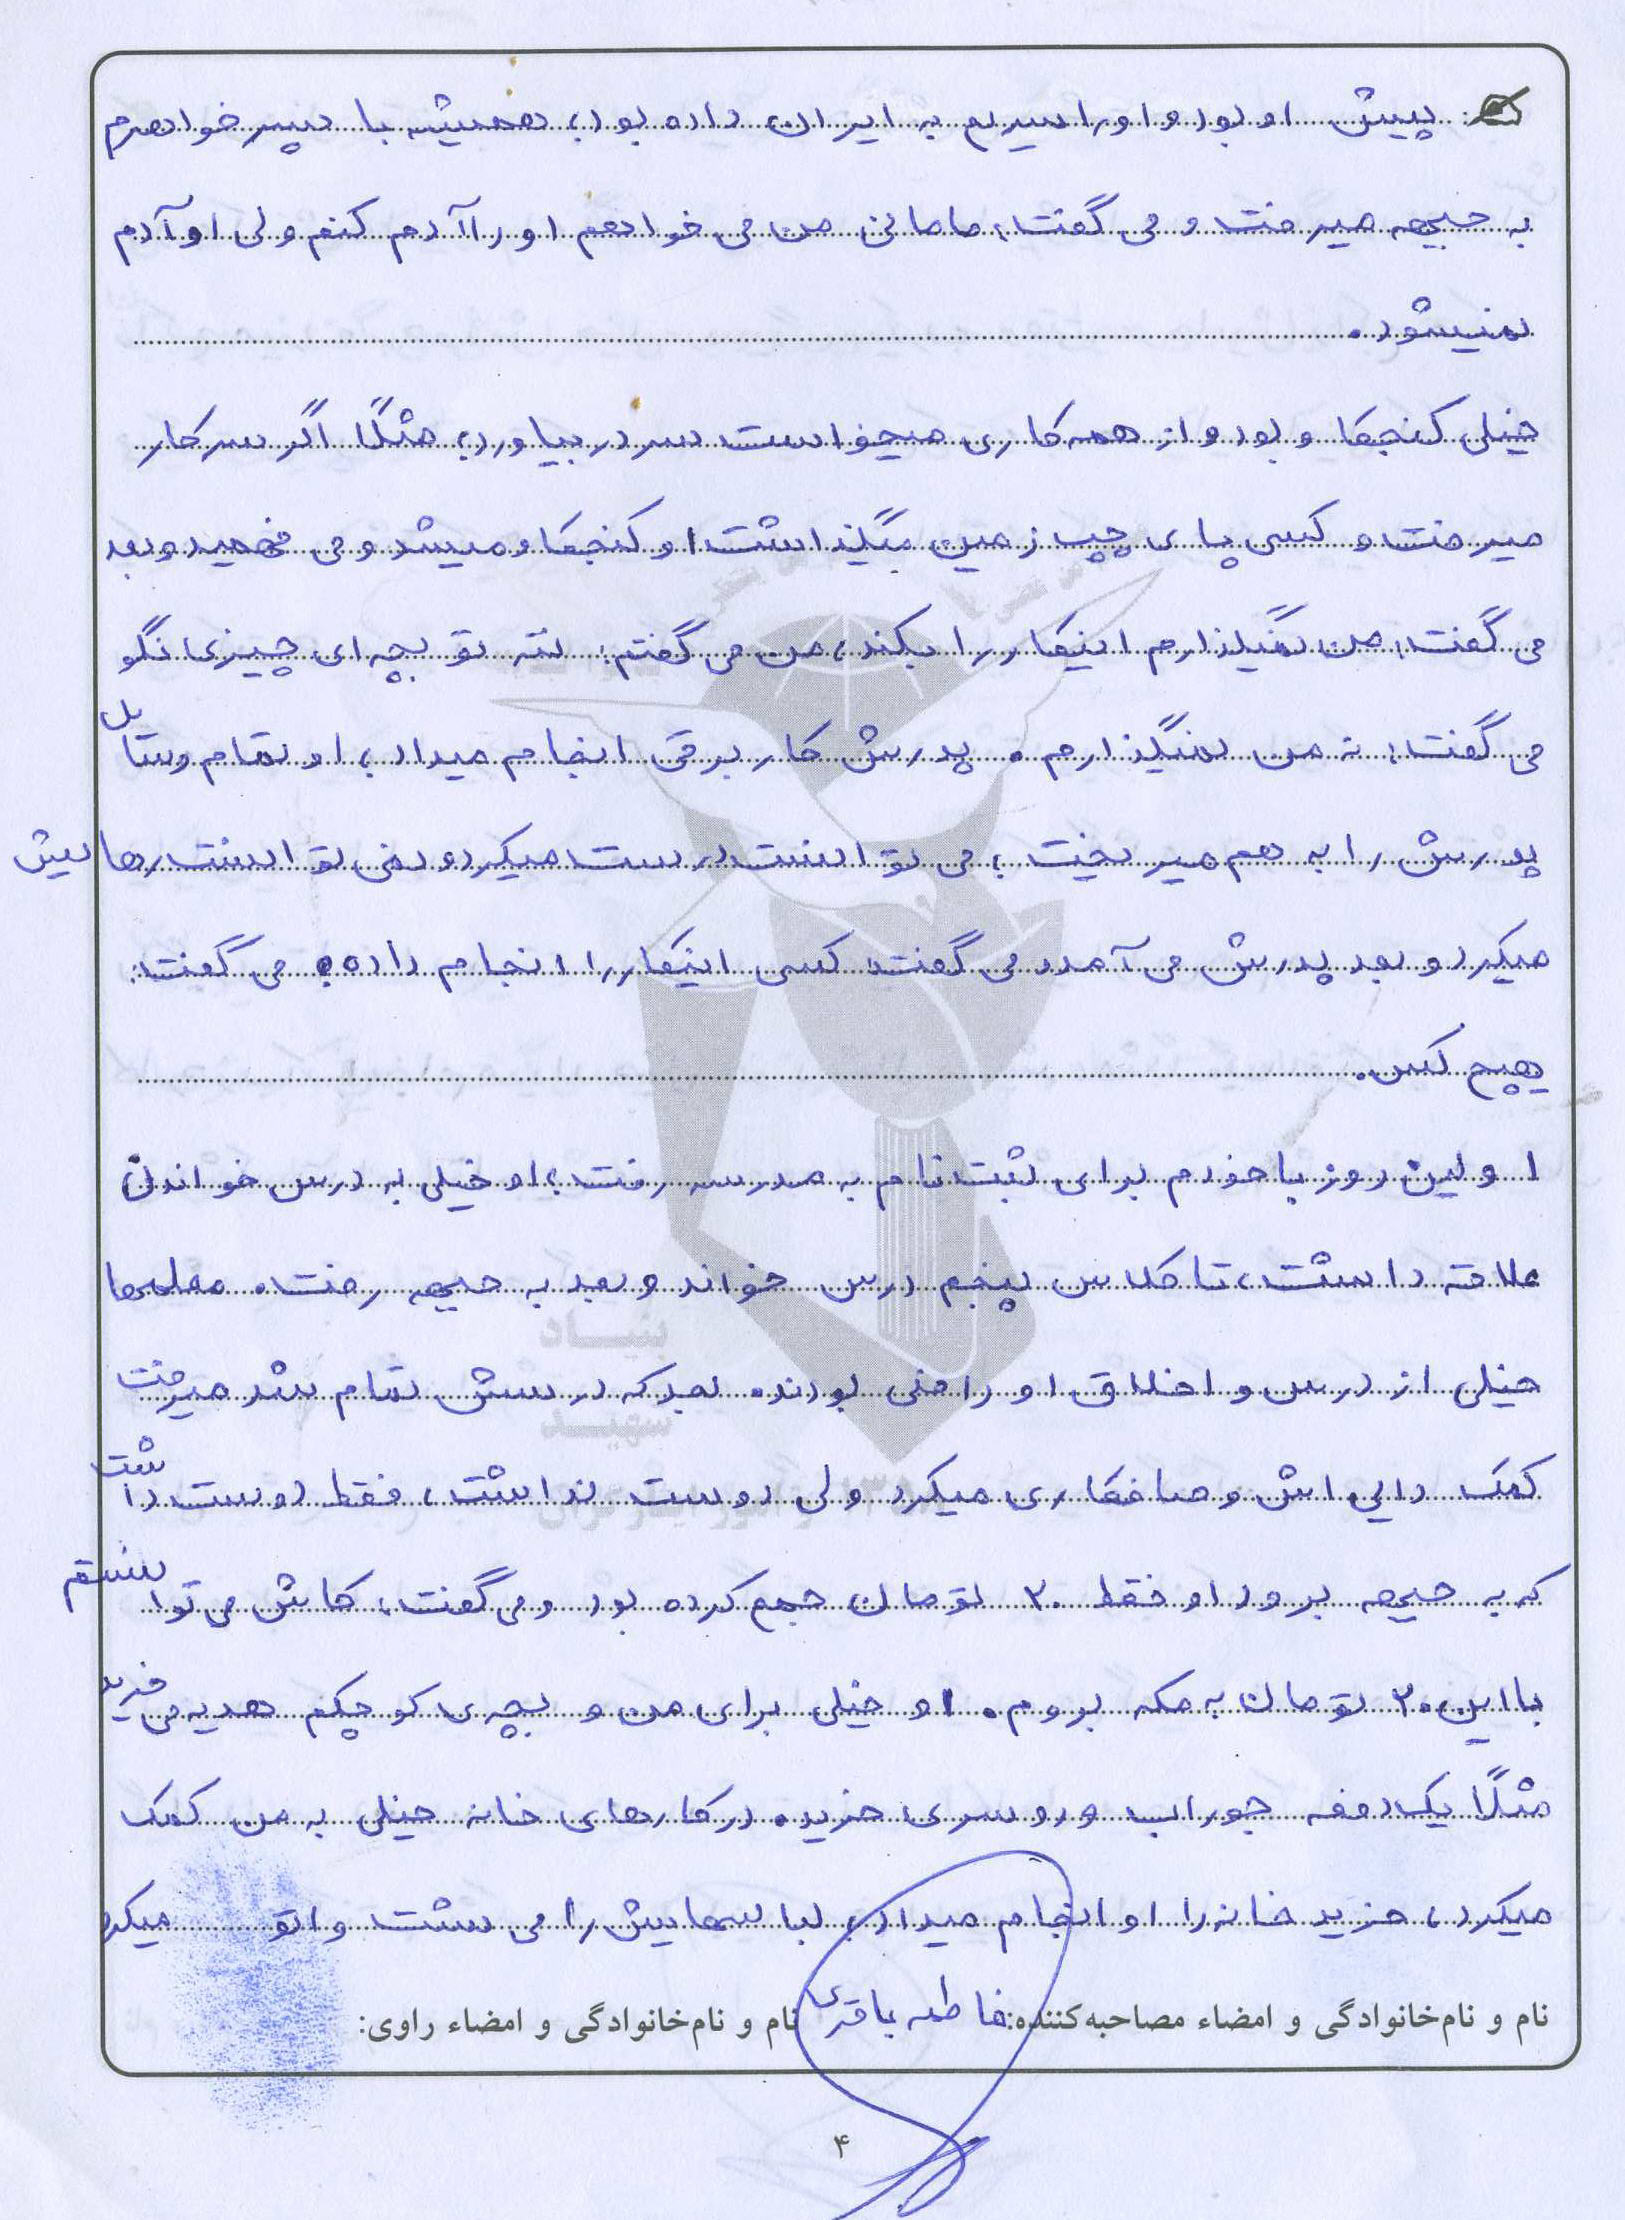 پیش او بود و او را سریع به ایران داده بود، همیشه با پسر خواهرم
به جبهه میرفت و می گفت: مامانی من می خواهم او را آدم کنم ولی او آدم
نمیشود.
خیلی کنجکاو بود و از همه کاری میخواست سر در بیاورد، مثلاً اگر سر کار
میرفت و کسی پای چپ زمین میگذاشت او کنجکاو میشد و می فهمید و بعد
می گفت: من نمیگذارم اینکار را بکند، من می گفتم: ننه تو بچه ای چیزی نگو
می گفت: نه من نمیگذارم. پدرش کار برقی انجام میداد، او تمام وسایل
پدرش را به هم میریخت، می توانست درست میکرد و نمی توانست رهایش
میکرد و بعد پدرش می آمد و می گفت: کسی اینکار را انجام داده؟ می گفت:
هیچ کس.
اولین روز با خودم برای ثبت نام به مدرسه رفت، او خیلی به درس خواندن
علاقه داشت، تا کلاس پنجم درس خواند و بعد به جبهه رفت. معلمها
خیلی از درس و اخلاق او راضی بودند. بعد که درسش تمام شد میرفت
کمک دایی اش و صافکاری میکرد ولی دوست نداشت، فقط دوست داشت
که به جبهه برود او فقط ۲۰ تومان جمع کرده بود و می گفت: کاش می توانستم
با این ۲۰ تومان به مکه بروم. او خیلی برای من و بچه ی کوچکم هدیه می خرید
مثلاً یک دفعه جوراب و روسری خرید. در کارهای خانه خیلی به من کمک
میکرد، خرید خانه را او انجام میداد، لباسهایش را می شست و اتو میکرد
نام و نام‌خانوادگی و امضاء مصاحبه‌کننده: فاطمه باقری نام و نام‌خانوادگی و امضاء راوی:
۴
بنیاد
شهید